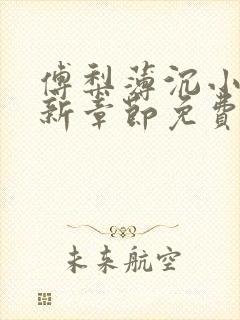 傅梨薄沉小
新章節免費
未来航空